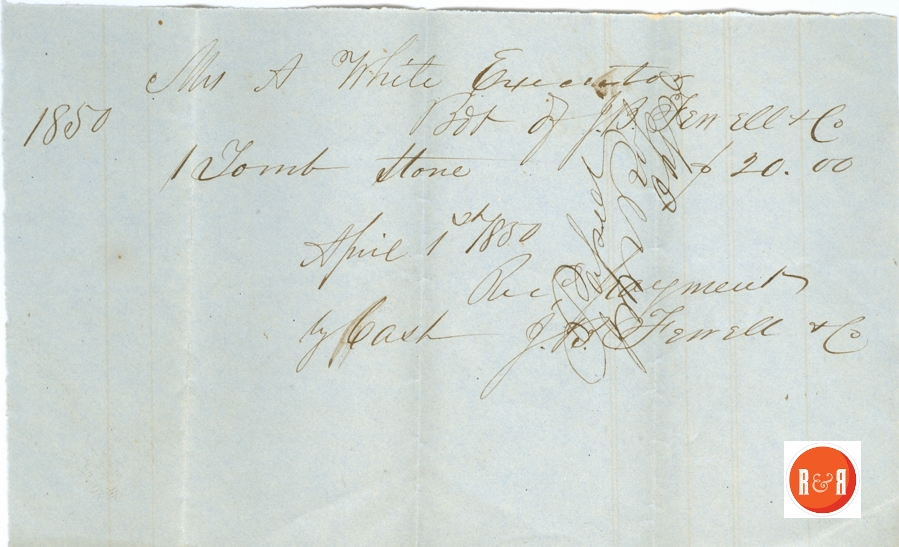 Mrs A White Executor
1850 Bot of J. B. Fewell & Co
1 Tomb Stone $ 20.00
April 1st 1850
Rec Payment
by Cash J. B. Fewell & Co
R&R